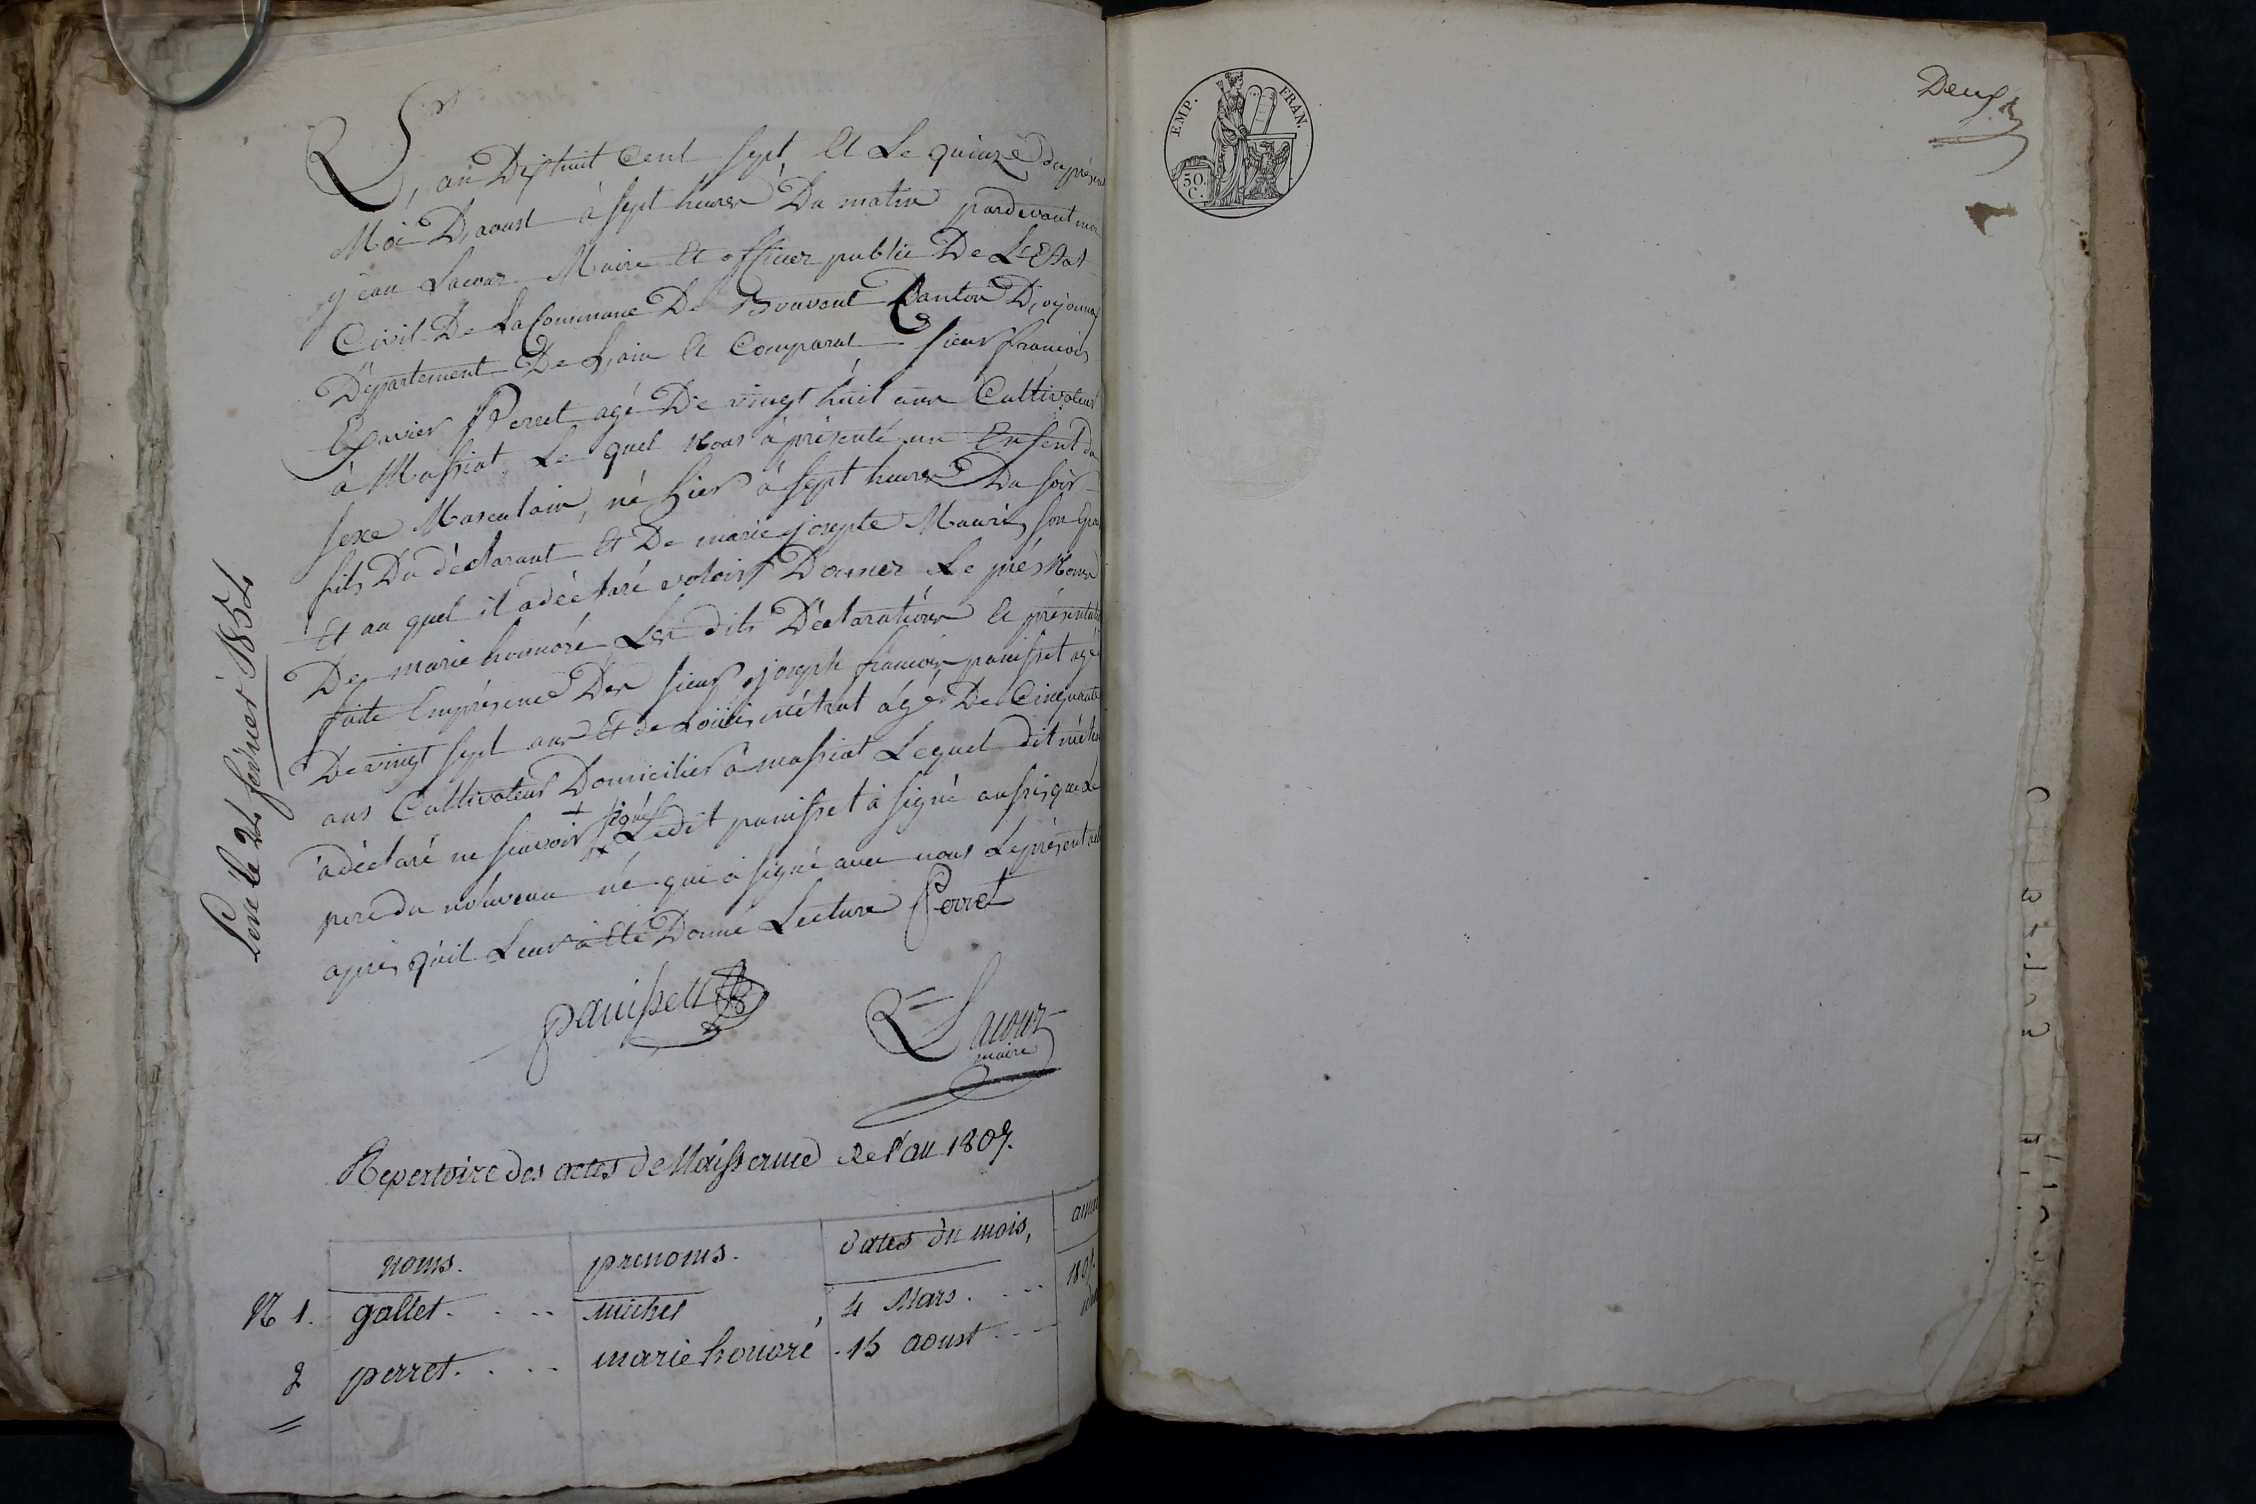 L'an Dixhuit Cent sept, Et Le quinze du présent
Moi D'aoust à sept heures Du matin pardevant moi
Jean Lacour Maire Et officier public De L'Etat
Civil De La Commune De Bouvent Canton D'oyonnax
Département De L'ain Et Comparut sieur françois
Exavier Perret agé De vingt huit ans Cultivateur
à Massiat Le quel Nous à présenté un Enfent du
sexe Masculain, né hier à sept heures Du soir
fils Du déclarant Et De marie josepte Mauris son
Et au quel il a déclaré voloir Donner Le prés Noms
De marie honnoré Les dits Déclarations Et présentation
faite Emprésence Des sieur joseph françois panisset agé
De vingt sept ans Et de Loüis métrat agé De Cinquante
ans Cultivateurs Domiciliés à massiat Lequel dit
à déclaré ne scavoir signé Ledit panisset à signé aussis que Le
pere du nouveau né qui à signé avec nous Le présent
après qu'il Leur à Eté Donné Lecture Perret
panissett
Lacour
maire
Levé le 24 février 1854
Repertoire des actes de Naissance de l'an 1807.
noms. prenoms. dates du mois,
N 1. gallet. michel 4 Mars. 1807.
2 perret. marie honoré 15 aoust
EMP. FRAN.
50.
C.
Deux